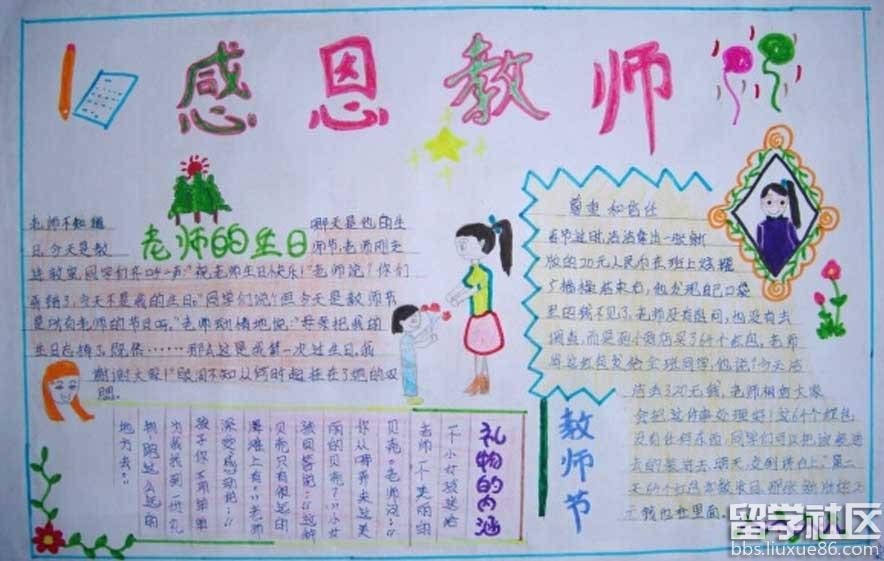 感恩教师
老师的生日
老师不知道 哪天是他的生
日,今天是教 师节,老师刚走
进教室,同学们齐呼一声"祝老师生日快乐!"老师说:"你们
弄错了,今天不是我的生日."同学们说:"但今天是教师节
是所有老师的节日啊,"老师动情地说:"母亲把我的
生日忘掉了,既然……那么这是我第一次过生日,我
谢谢大家!"眼泪不知从何时起挂在了他的双
尊重和信任
春节过后,浩浩拿出一张新
版的20元人民币在班上炫耀
他发现自己口袋
里的钱不见了,老师没有怒问,也没有去
调查,而是到小商店买了64个红包,老师
将这红包发给全班同学,他说:"今天浩
浩丢了20元钱,老师相信大家
会把这件事处理好!这64个红包
没有任何东西,同学们可以把这
去的装进去,明天,交到讲台上,"第二
天64个红包
元钱也在里面。
礼物的内涵
一个小女孩送给
老师一个美丽的
贝壳。老师问:"
你从哪弄来这美
丽的贝壳?"小女
孩回答说:"这种
贝壳只有很远的
海滩上有。"老师
深受感动说:"
孩子你不用单单
为我找到一份礼
物跑这么远的
地方去。"
教师节
留学社区
bbs.liuxue86.com